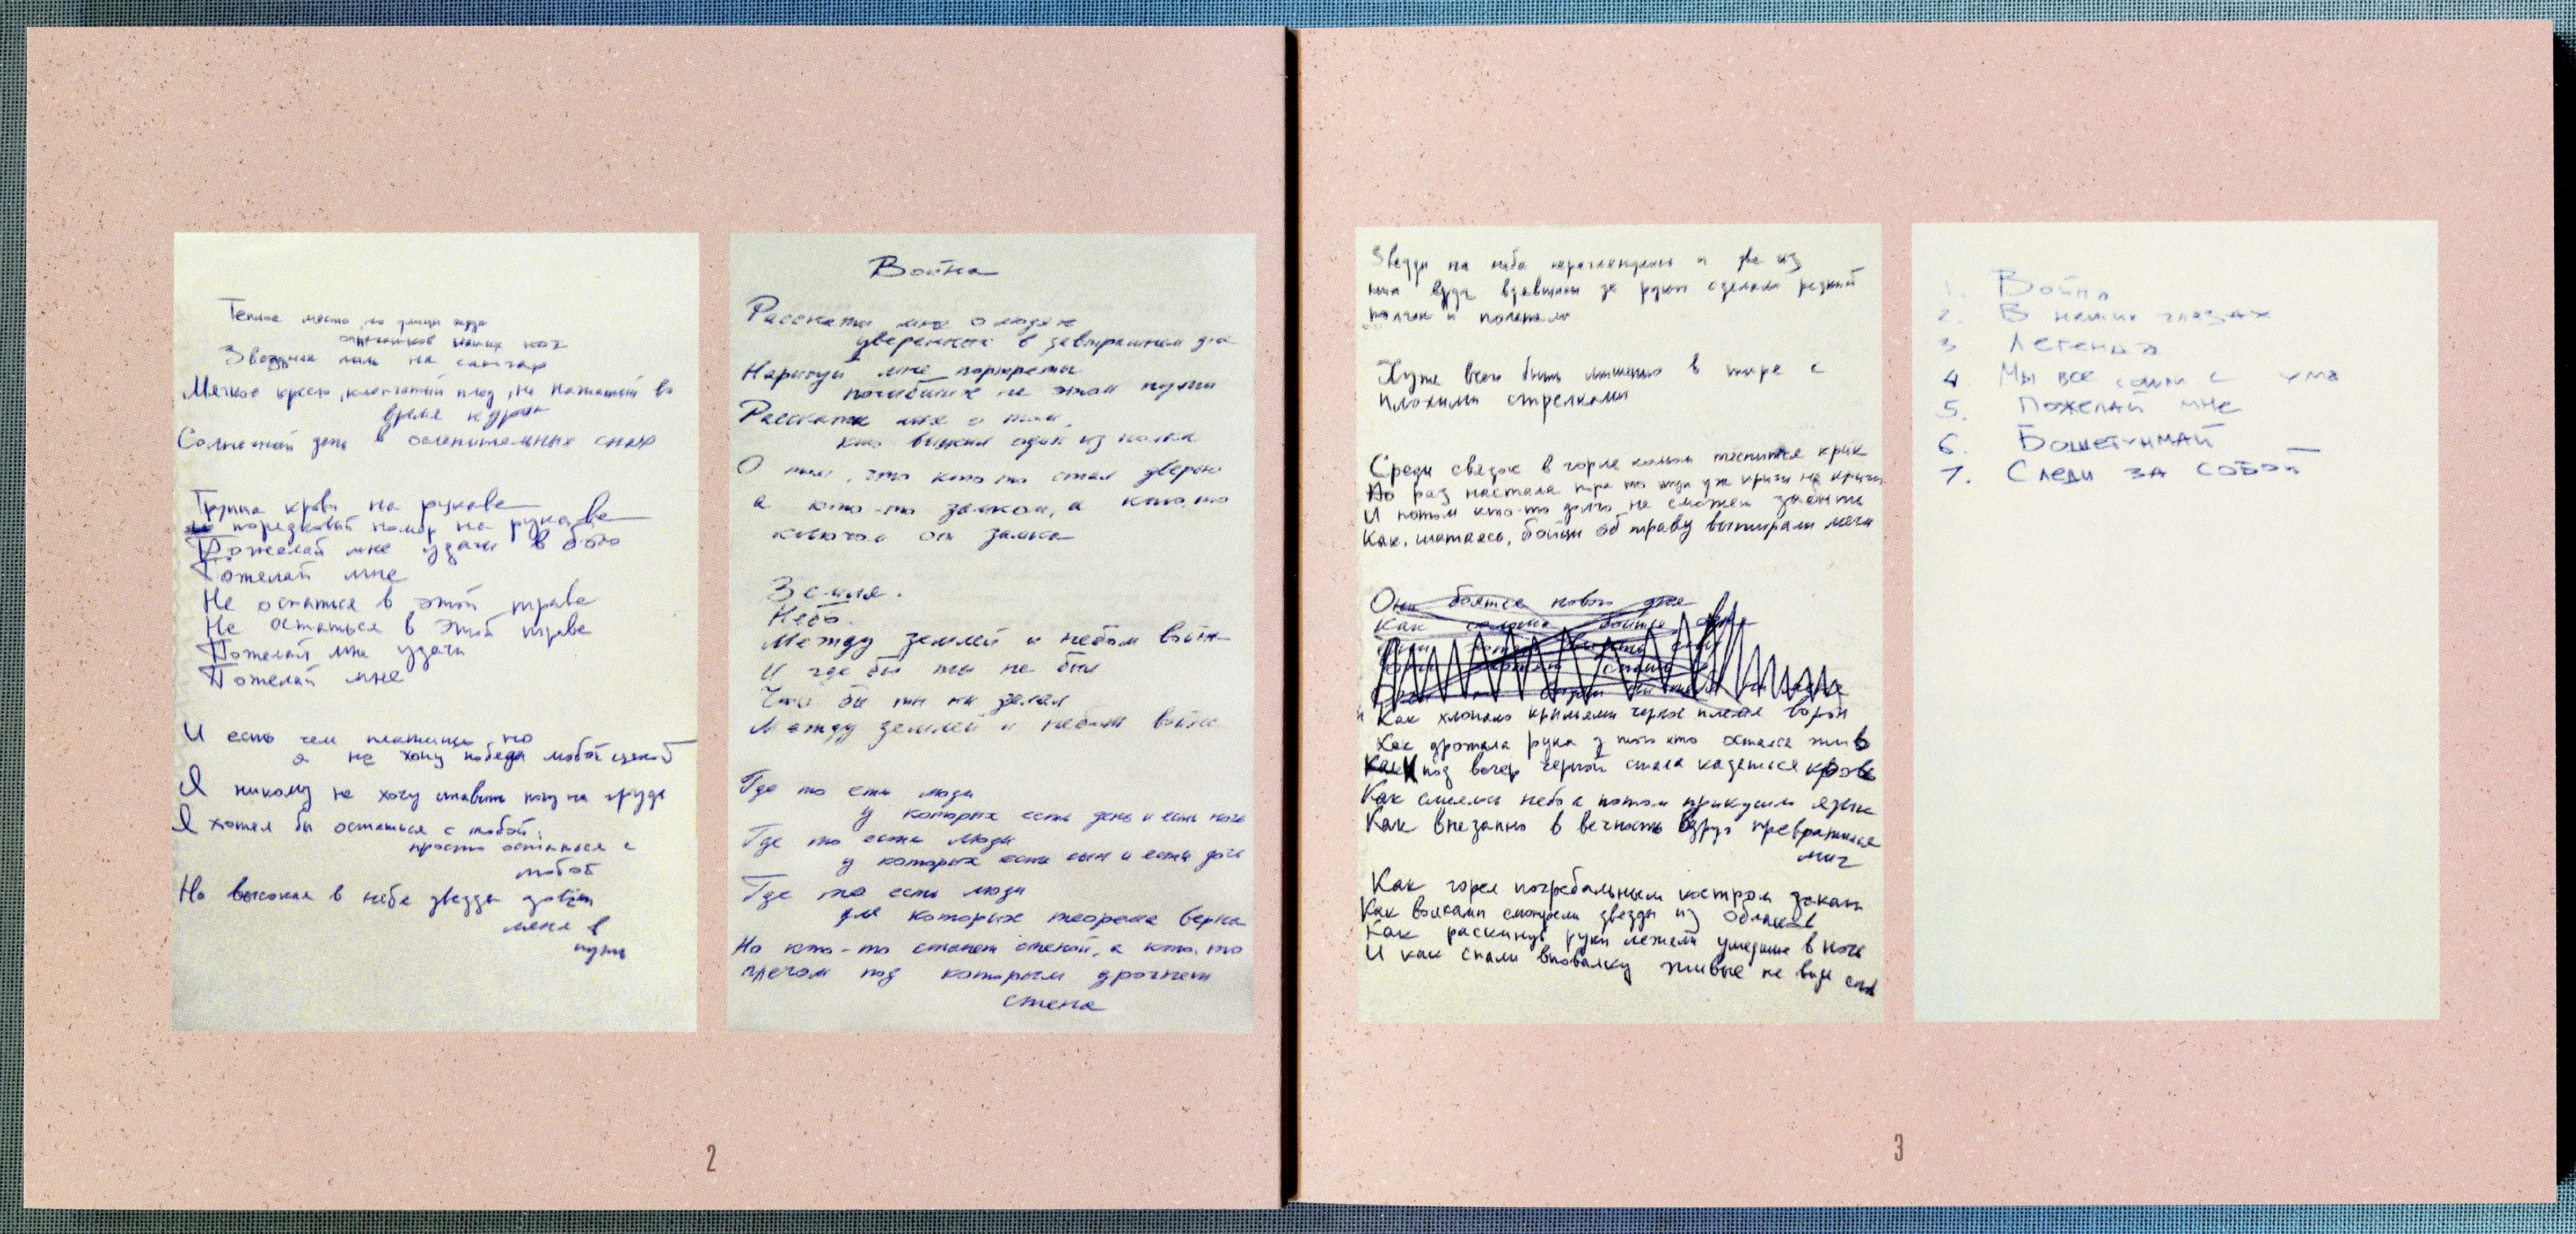 Теплое место, но улицы ждут
отпечатков наших ног
Звездная пыль на сапогах
Мягкое кресло, клетчатый плед, не нажатый во
время курок
Солнечный день в ослепительных снах
Группа крови на рукаве
порядковый номер на рукаве
Пожелай мне удачи в бою
Пожелай мне
Не остаться в этой траве
Не остаться в этой траве
Пожелай мне удачи
Пожелай мне
И есть чем платить, но
я не хочу победы любой ценой
Я никому не хочу ставить ногу на грудь
Я хотел бы остаться с тобой,
просто остаться с
тобой
Но высокая в небе звезда зовет
меня в
путь
Война
Расскажи мне о людях
уверенных в завтрашнем дне
Нарисуй мне портреты
погибших на этом пути
Расскажи мне о том,
кто выжил один из полка
О том, что кто-то стал дверью
а кто-то замком, а кто-то
ключом от замка
Земля.
Небо.
Между землей и небом война
И где бы ты не был
Что б ты ни делал
Между землей и небом война
Где то есть люди
у которых есть день и есть ночь
Где то есть люди
у которых есть сын и есть дочь
Где то есть люди
для которых теорема верна
Но кто-то станет стеной, а кто-то
плечом под которым дрогнет
стена
2
Звезды на небе и две из
них вдруг взявшись за руки сделали резкий
и полетели
Хуже всего быть мишенью в тире с
плохими стрелками
Среди связок в горле комом теснится крик
Но раз настала пора то тут уж кричи не кричи
И потом кто-то долго не сможет забыть
Как, шатаясь, бойцы об траву вытирали мечи
Они боятся нового дня
Как солома боится огня
Как хлопало крыльями черное племя ворон
Как дрожала рука у того кто остался жив
Как под вечер черной стала казаться кровь
Как смеялось небо а потом прикусило язык
Как внезапно в вечность вдруг превратился
миг
Как горел погребальным костром закат
Как волками смотрели звезды из облаков
Как раскинув руки лежали ушедшие в ночь
И как спали вповалку живые не видя снов
1. Война
2. В наших глазах
3 Легенда
4 Мы все сошли с ума
5. Пожелай мне
6. Бошетунмай
7. Следи за собой
3